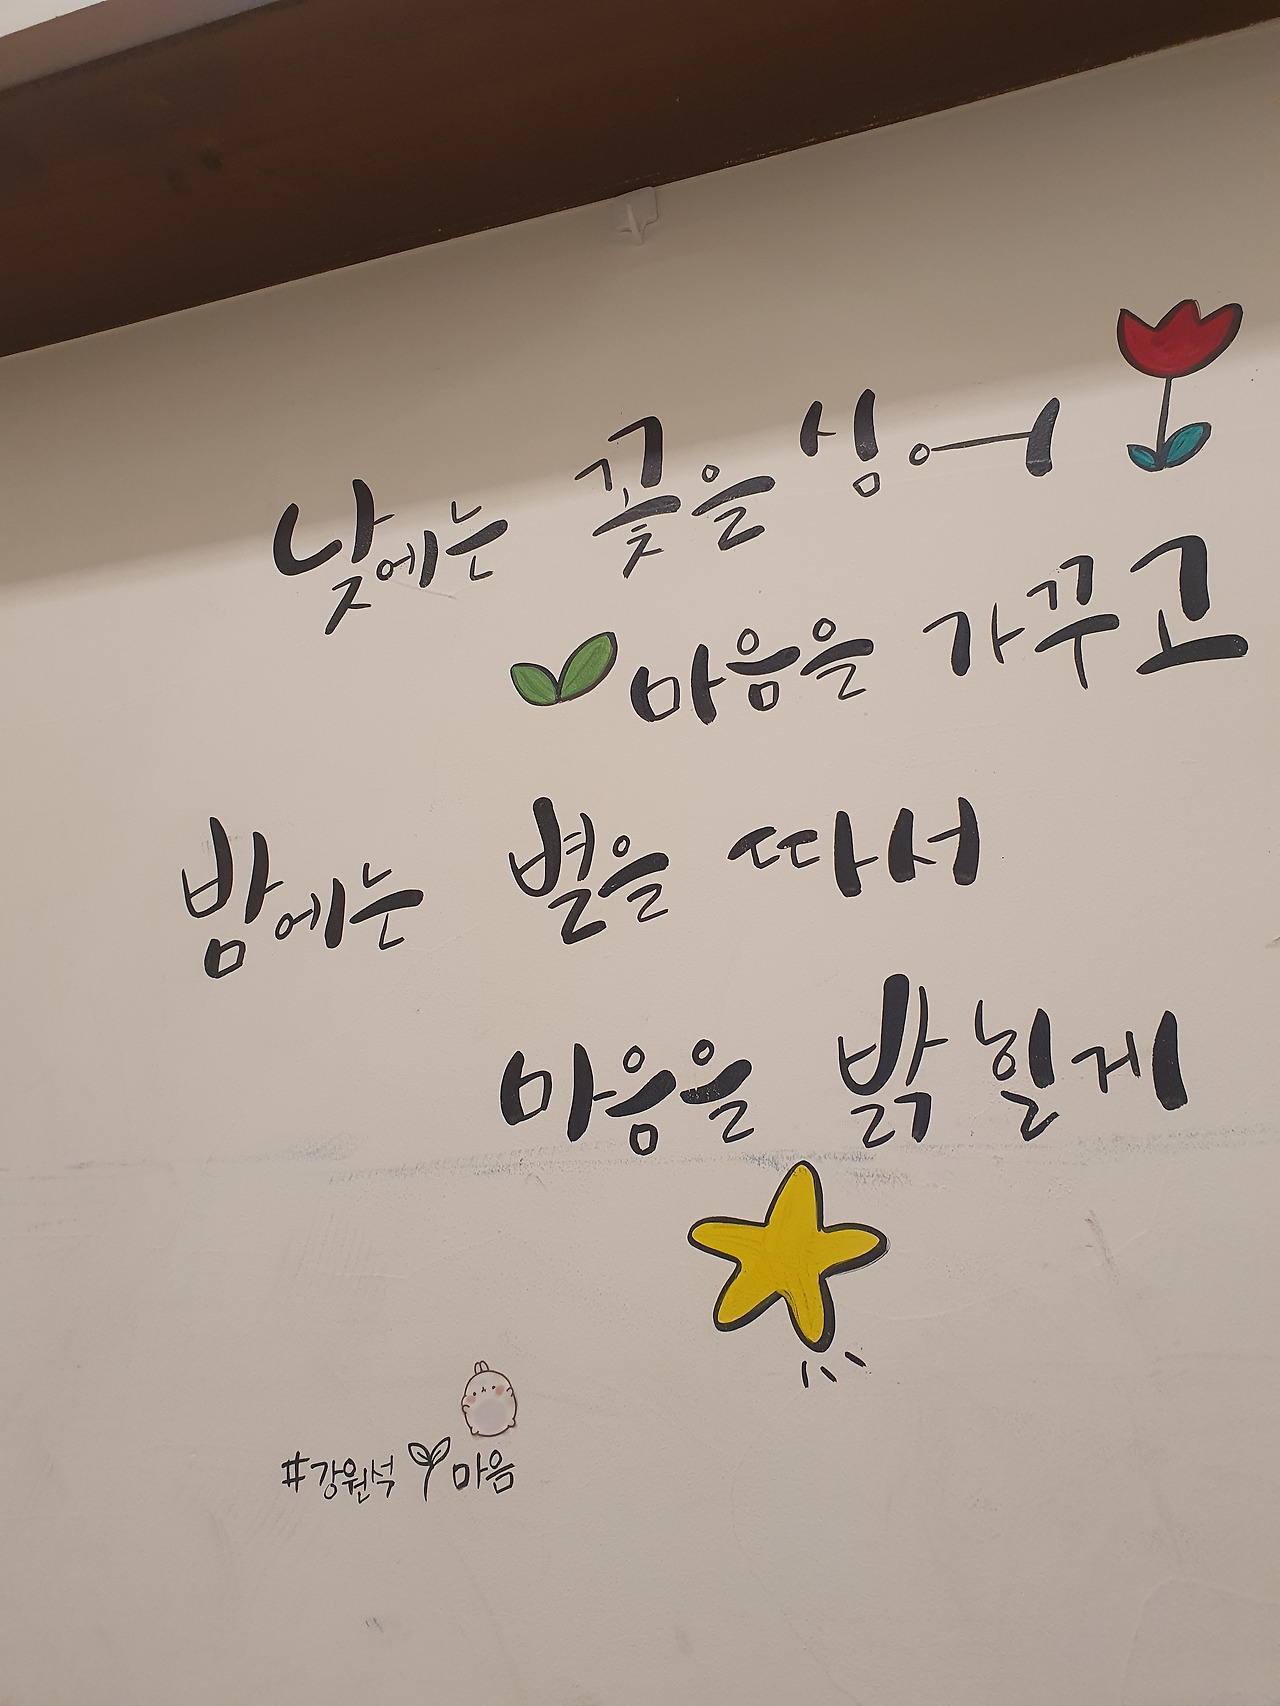 낮에는 꽃을 싱어
마음을 가꾸고
밤에는 별을 따서
마음을 밝힐게
#강원석 마음